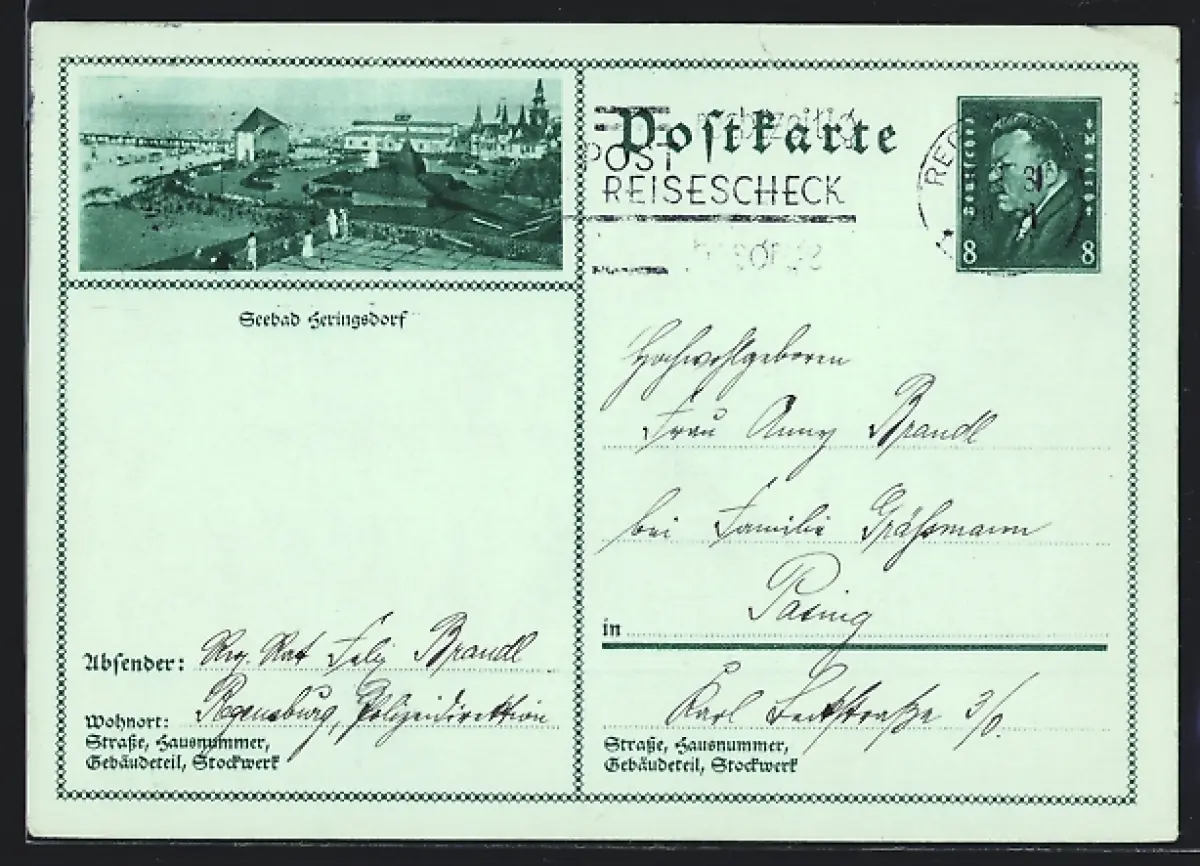 Postkarte
rechtzeitig
POST
REISESCHECK
Deutsches Reich
8 8
Seebad Heringsdorf
Hochwohlgeboren
Frau Anny Brandl
bei Familie Gräßmann
in Pasing
Karl
3/0.
Straße, Hausnummer,
Gebäudeteil, Stockwerk
Absender: Reg. Rat Felix Brandl
Wohnort: Regensburg, Polizeidirektion
Straße, Hausnummer,
Gebäudeteil, Stockwerk